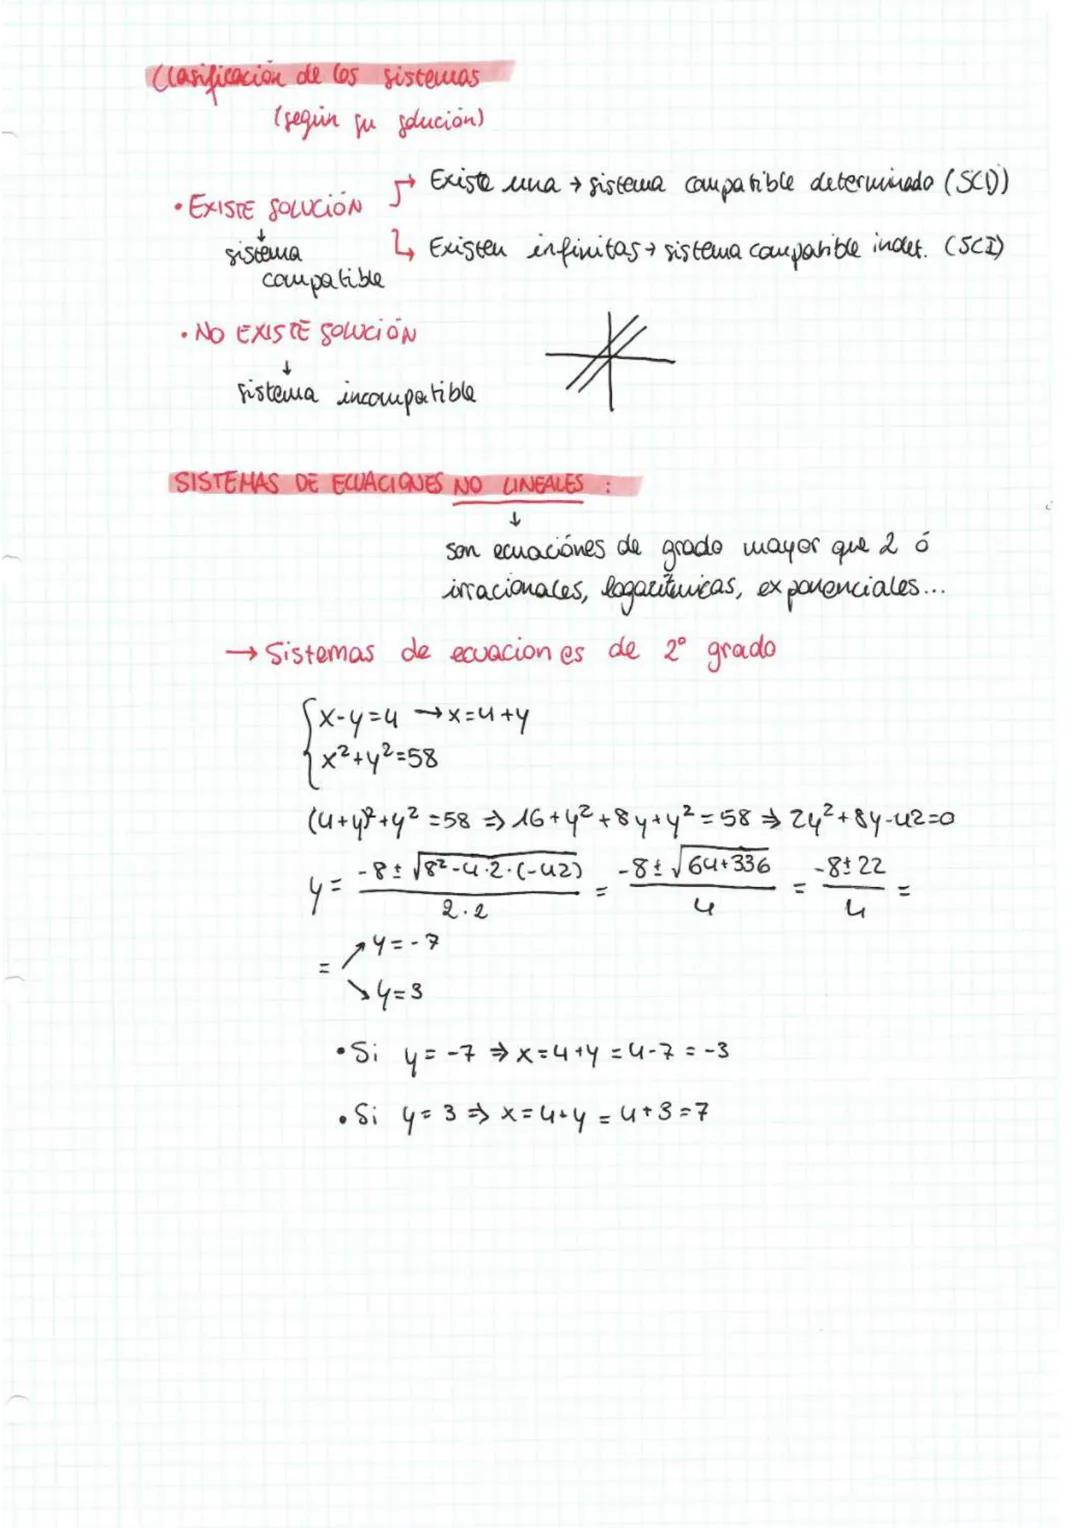 Clasificación de los sistemas
(según su solución)
• EXISTE SOLUCIÓN
↓
sistema
compatible
→ Existe una → sistema compatible determinado (SCD)
↳ Existen infinitas → sistema compatible indet. (SCI)
• NO EXISTE SOLUCIÓN
↓
sistema incompatible
SISTEMAS DE ECUACIONES NO LINEALES :
↓
son ecuaciónes de grado mayor que 2 ó
irracionales, logarítmicas, exponenciales...
→ Sistemas de ecuaciones de 2º grado
x-y=4 → x=4+y
x²+y²=58
(4+y)²+y²=58 ⇒ 16+y²+8y+y²=58 ⇒ 2y²+8y-42=0
y = (-8±√(8²-4·2·(-42)))/(2·2) = (-8±√(64+336))/4 = (-8±22)/4 =
= ↗ y=-7
↘ y=3
• Si y=-7 ⇒ x=4+y=4-7=-3
• Si y=3 ⇒ x=4+y=4+3=7